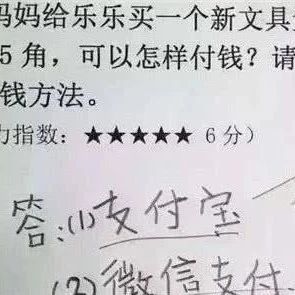 妈妈给乐乐买一个新文具
5 角，可以怎样付钱？请
钱方法。
力指数：★★★★★ 6 分）
答：(1)支付宝
(2)微信支付